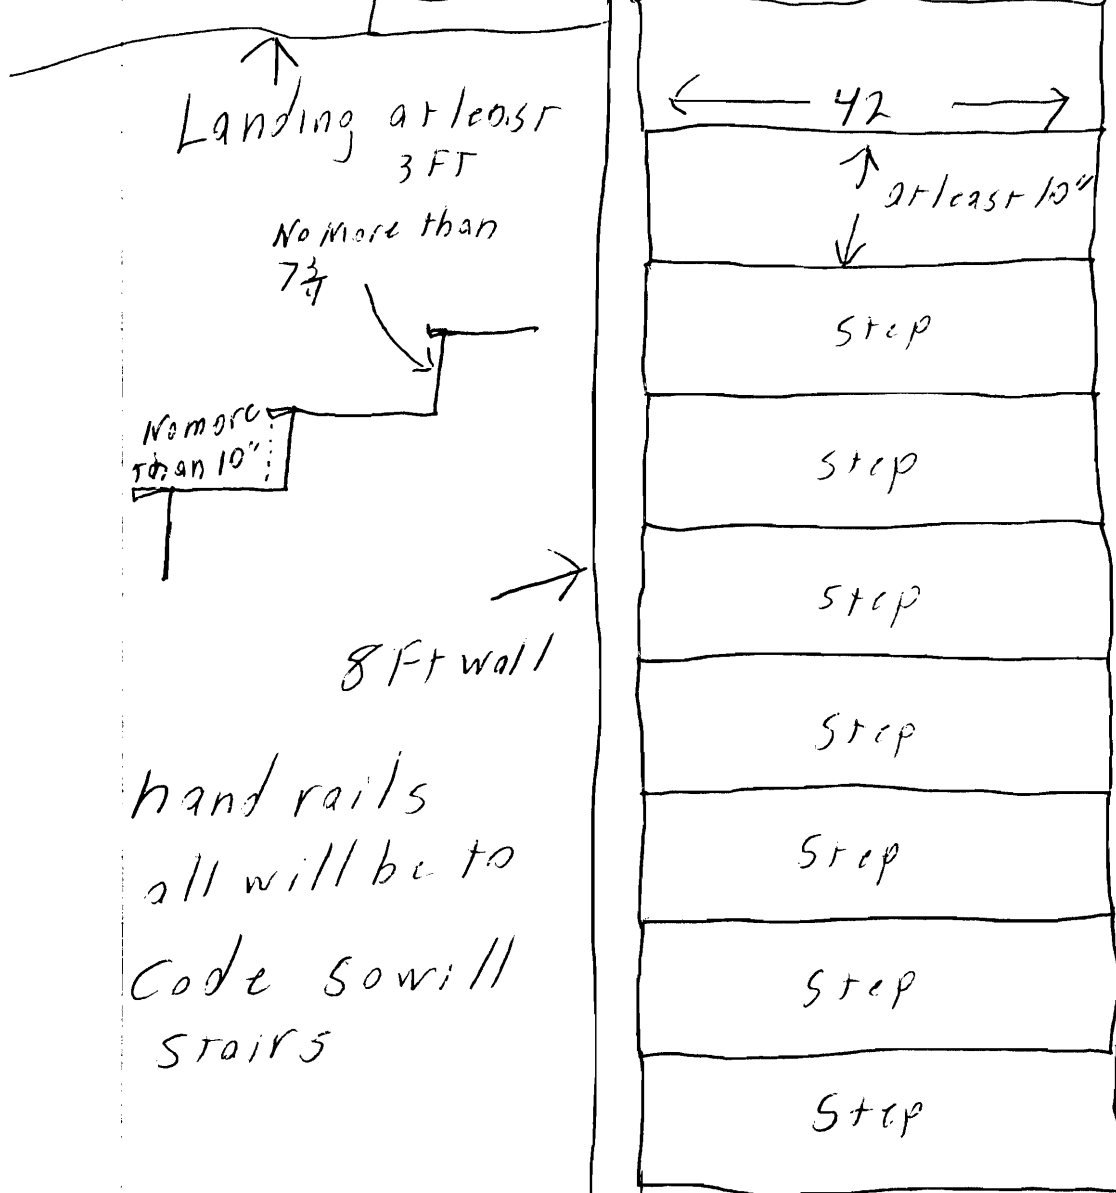 Landing at least
3 FT
No more than
7 3/4
No more
than 10"
8 Ft wall
hand rails
all will be to
Code so will
stairs
42
at least 10"
step
step
step
step
step
step
step